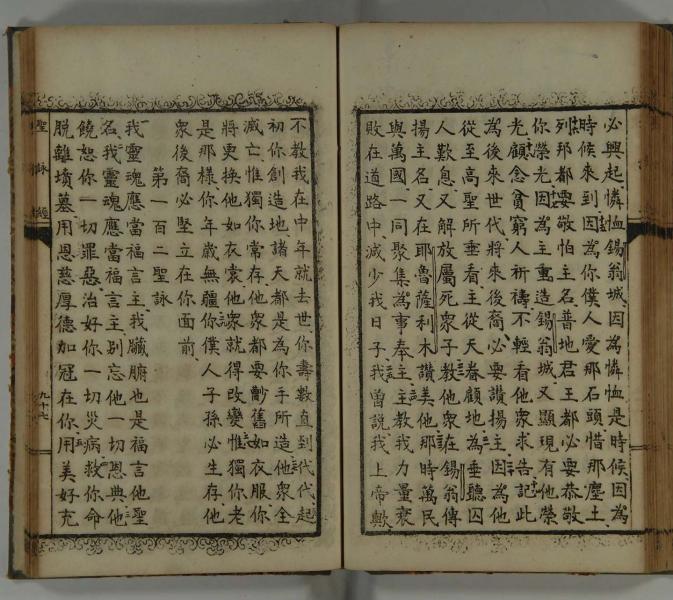 必興起憐恤錫翁城因為憐恤是時候因為
時候來到因為你僕人愛那石頭惜那塵土
列邦都要敬怕主名普地君王都必要恭敬
你榮光因為主重造錫翁城又顯現有他榮
光顧念貧窮人祈禱不輕看他眾求告記此
為後來世代將來後裔必要讚揚主因為他
從至高聖所垂看主從天眷顧地為垂聽囚
人歎息又解放屬死眾子教他眾在錫翁傳
揚主名又在耶魯薩利木讚美他那時萬民
與萬國一同聚集為事奉主主教我力量衰
敗在道路中減少我日子我曾說我上帝歟
不教我在中年就去世你壽數直到代代起
初你創造地諸天都是為你手所造他眾全
滅亡惟獨你常存他眾都要舊如衣服你
將更換他如衣裳他眾就得改變惟獨你老
是那樣你年歲無疆你僕人子孫必生存他
眾後裔必堅立在你面前
第一百二聖詠
我靈魂應當福言主我臟腑也是福言他聖
名我靈魂應當福言主別忘他一切恩典他
饒恕你一切罪惡治好你一切災病救你命
脫離墳墓用恩慈厚德加冠在你用美好充
聖詠經
九十七